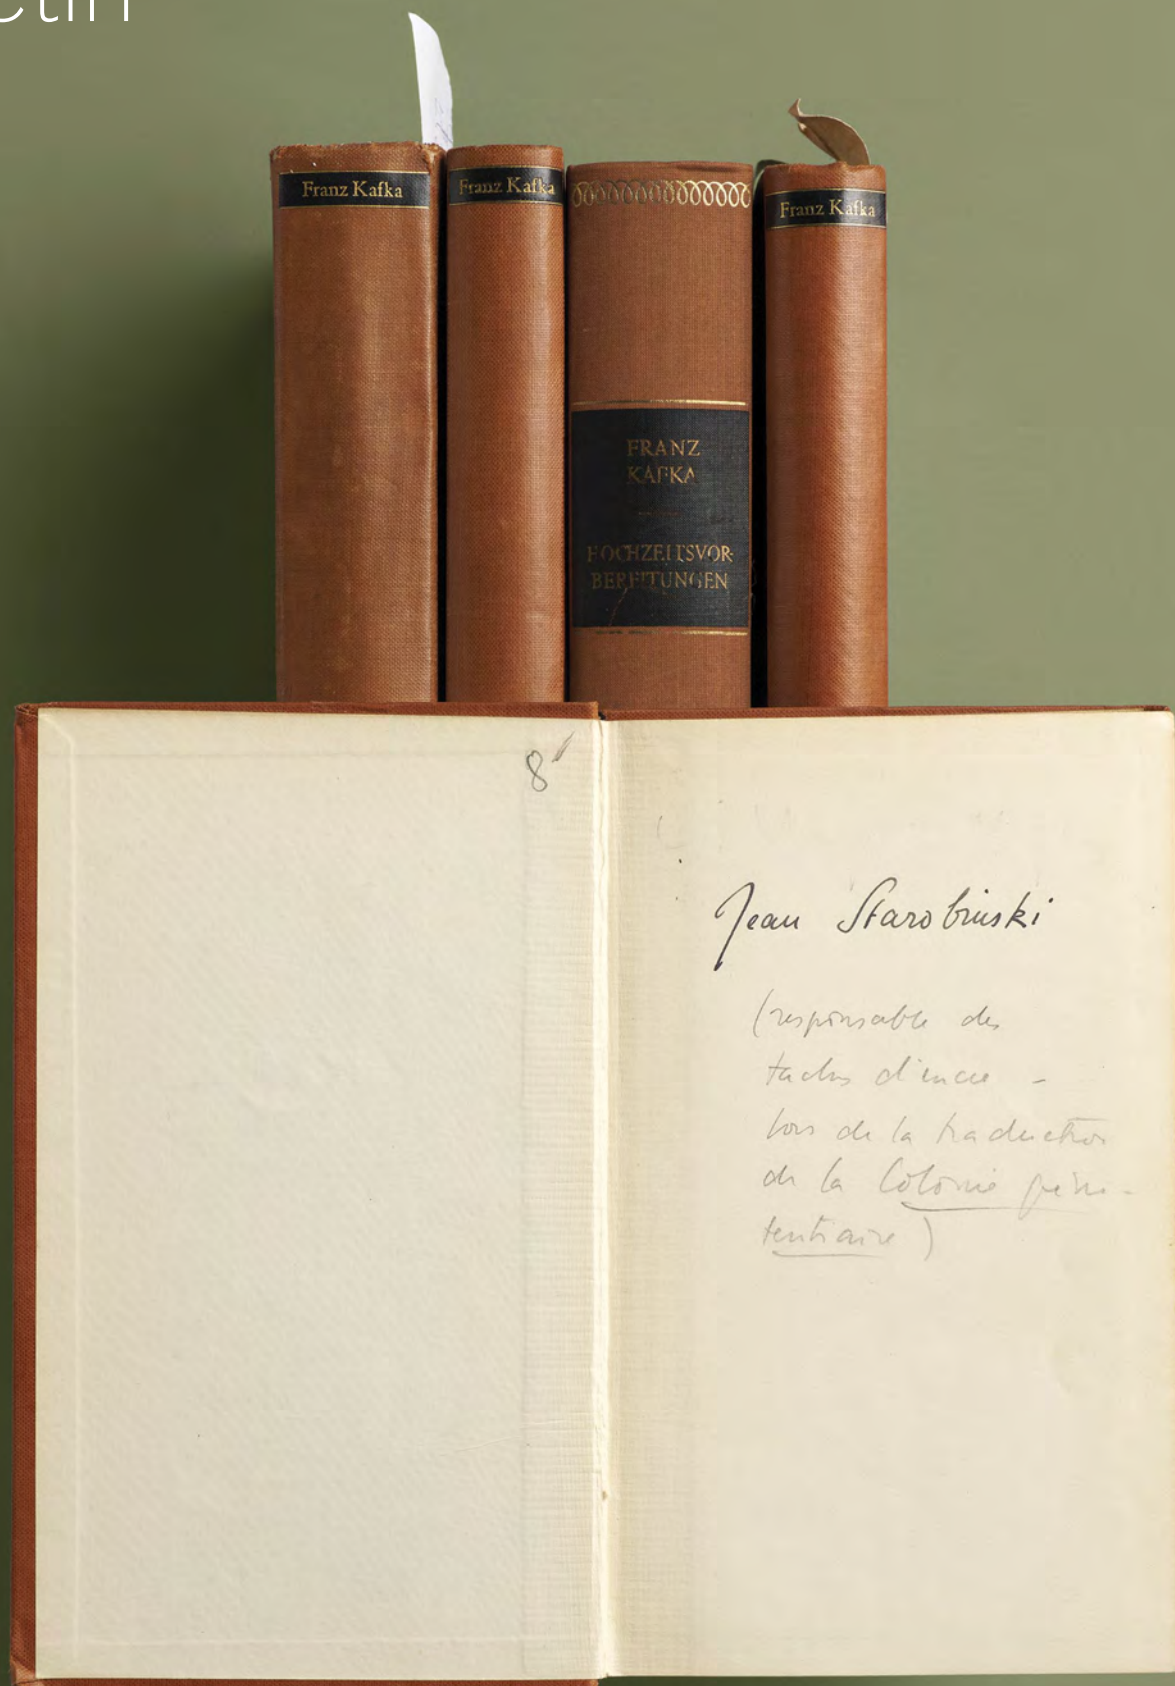 Franz Kafka
Franz Kafka
FRANZ
KAFKA
HOCHZEITSVOR-
BEREITUNGEN
Franz Kafka
8
Jean Starobinski
(responsable des
taches d'encre –
lors de la traduction
de la Colonie péni-
tentiaire)